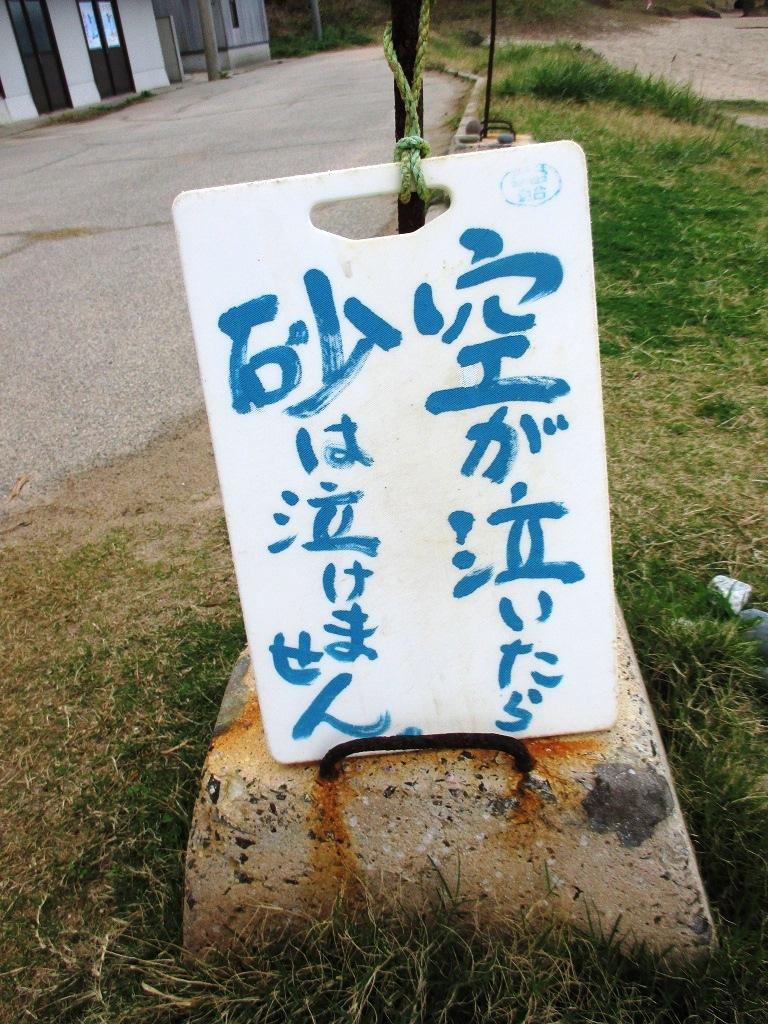 空が泣いたら
砂は泣けません